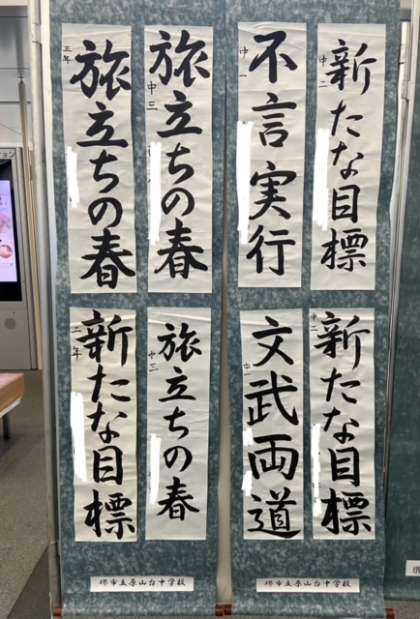 新たな目標
中二
不言実行
中一
旅立ちの春
中三
旅立ちの春
三年
新たな目標
中二
文武両道
中一
旅立ちの春
中三
新たな目標
二年
堺市立原山台中学校
堺市立原山台中学校
堺